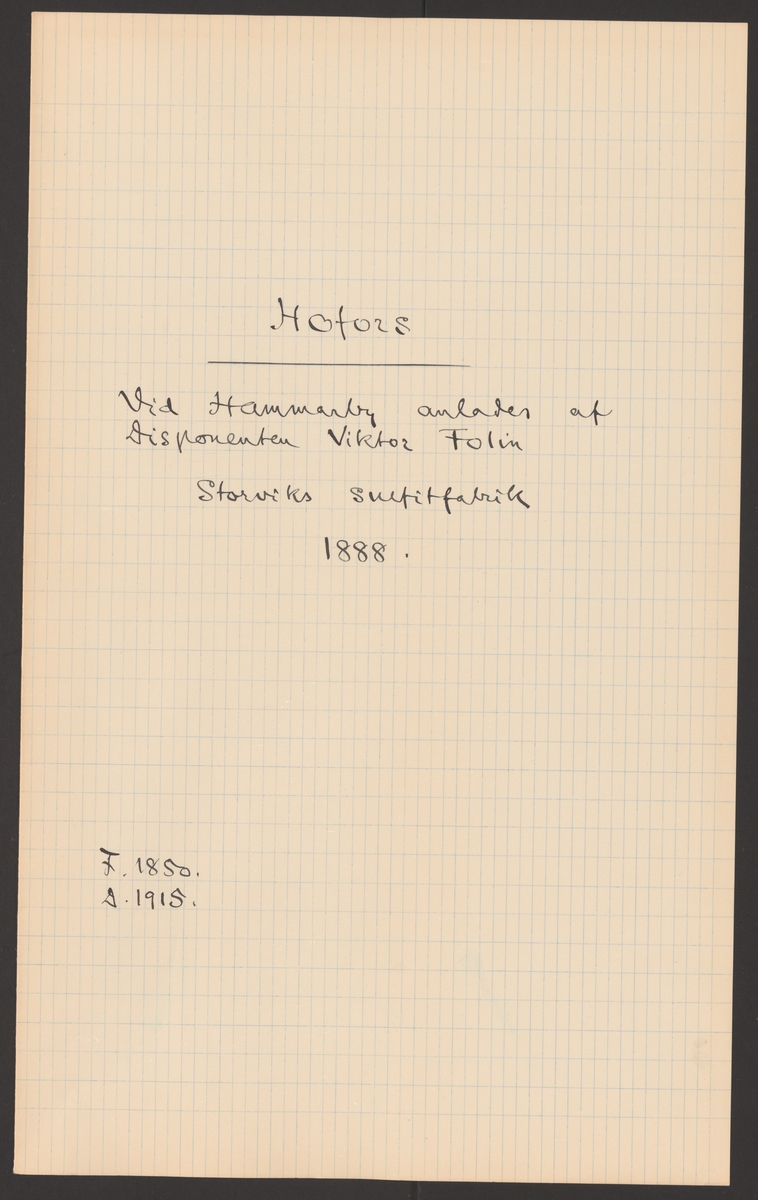 Hofors
Vid Hammarby anlades af
Disponenten Viktor Folin
Storviks Sulfitfabrik
1888.
F. 1850.
D. 1915.